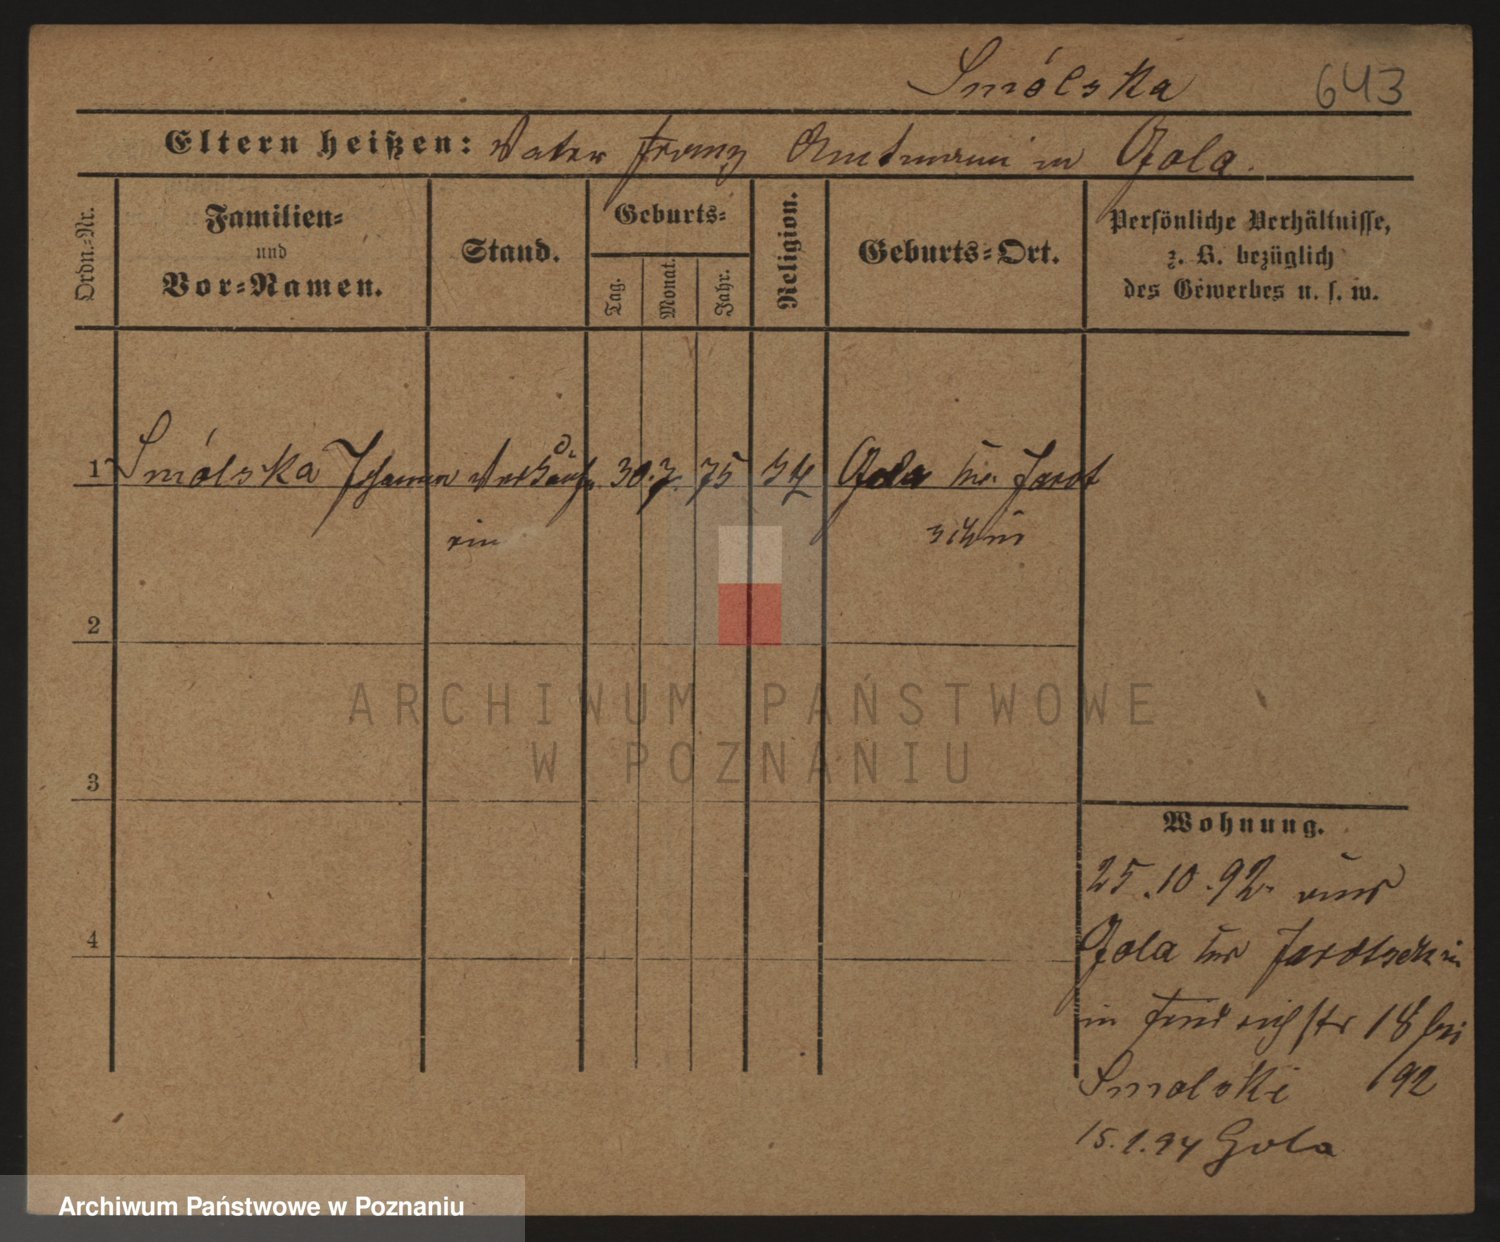 Smólska 643
Eltern heißen: Vater Franz Amtmann in Gola.
Ordn.=Nr.
Familien=
und
Vor=Namen.
Stand.
Geburts=
Tag.
Monat.
Jahr.
Religion.
Geburts=Ort.
Persönliche Verhältnisse,
z. B. bezüglich
des Gewerbes u. s. w.
1 Smólska Johanna Verkäufe 30. 7. 75 Gola Kr. Jarot
rin schin
2
3
4
Wohnung.
25.10.92. aus
Gola Kr Jarotschin
in Friedrichstr 18 bei
Smolski /92
15.1.94 Gola
ARCHIWUM PAŃSTWOWE
W POZNANIU
Archiwum Państwowe w Poznaniu